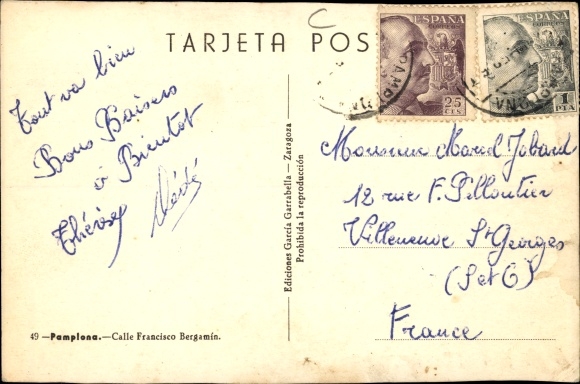 C
TARJETA POS
ESPAÑA
25
CTS
ESPAÑA
1
PTA
Tout va bien
Bons Baisers
à Bientot
Thérèse Dédé
Ediciones García Garrabella — Zaragoza
Prohibida la reproducción
Monsieur Marcel Jobard
12 rue F. Pelloutier
Villeneuve St Georges
(S et O)
France
49 —Pamplona.—Calle Francisco Bergamín.